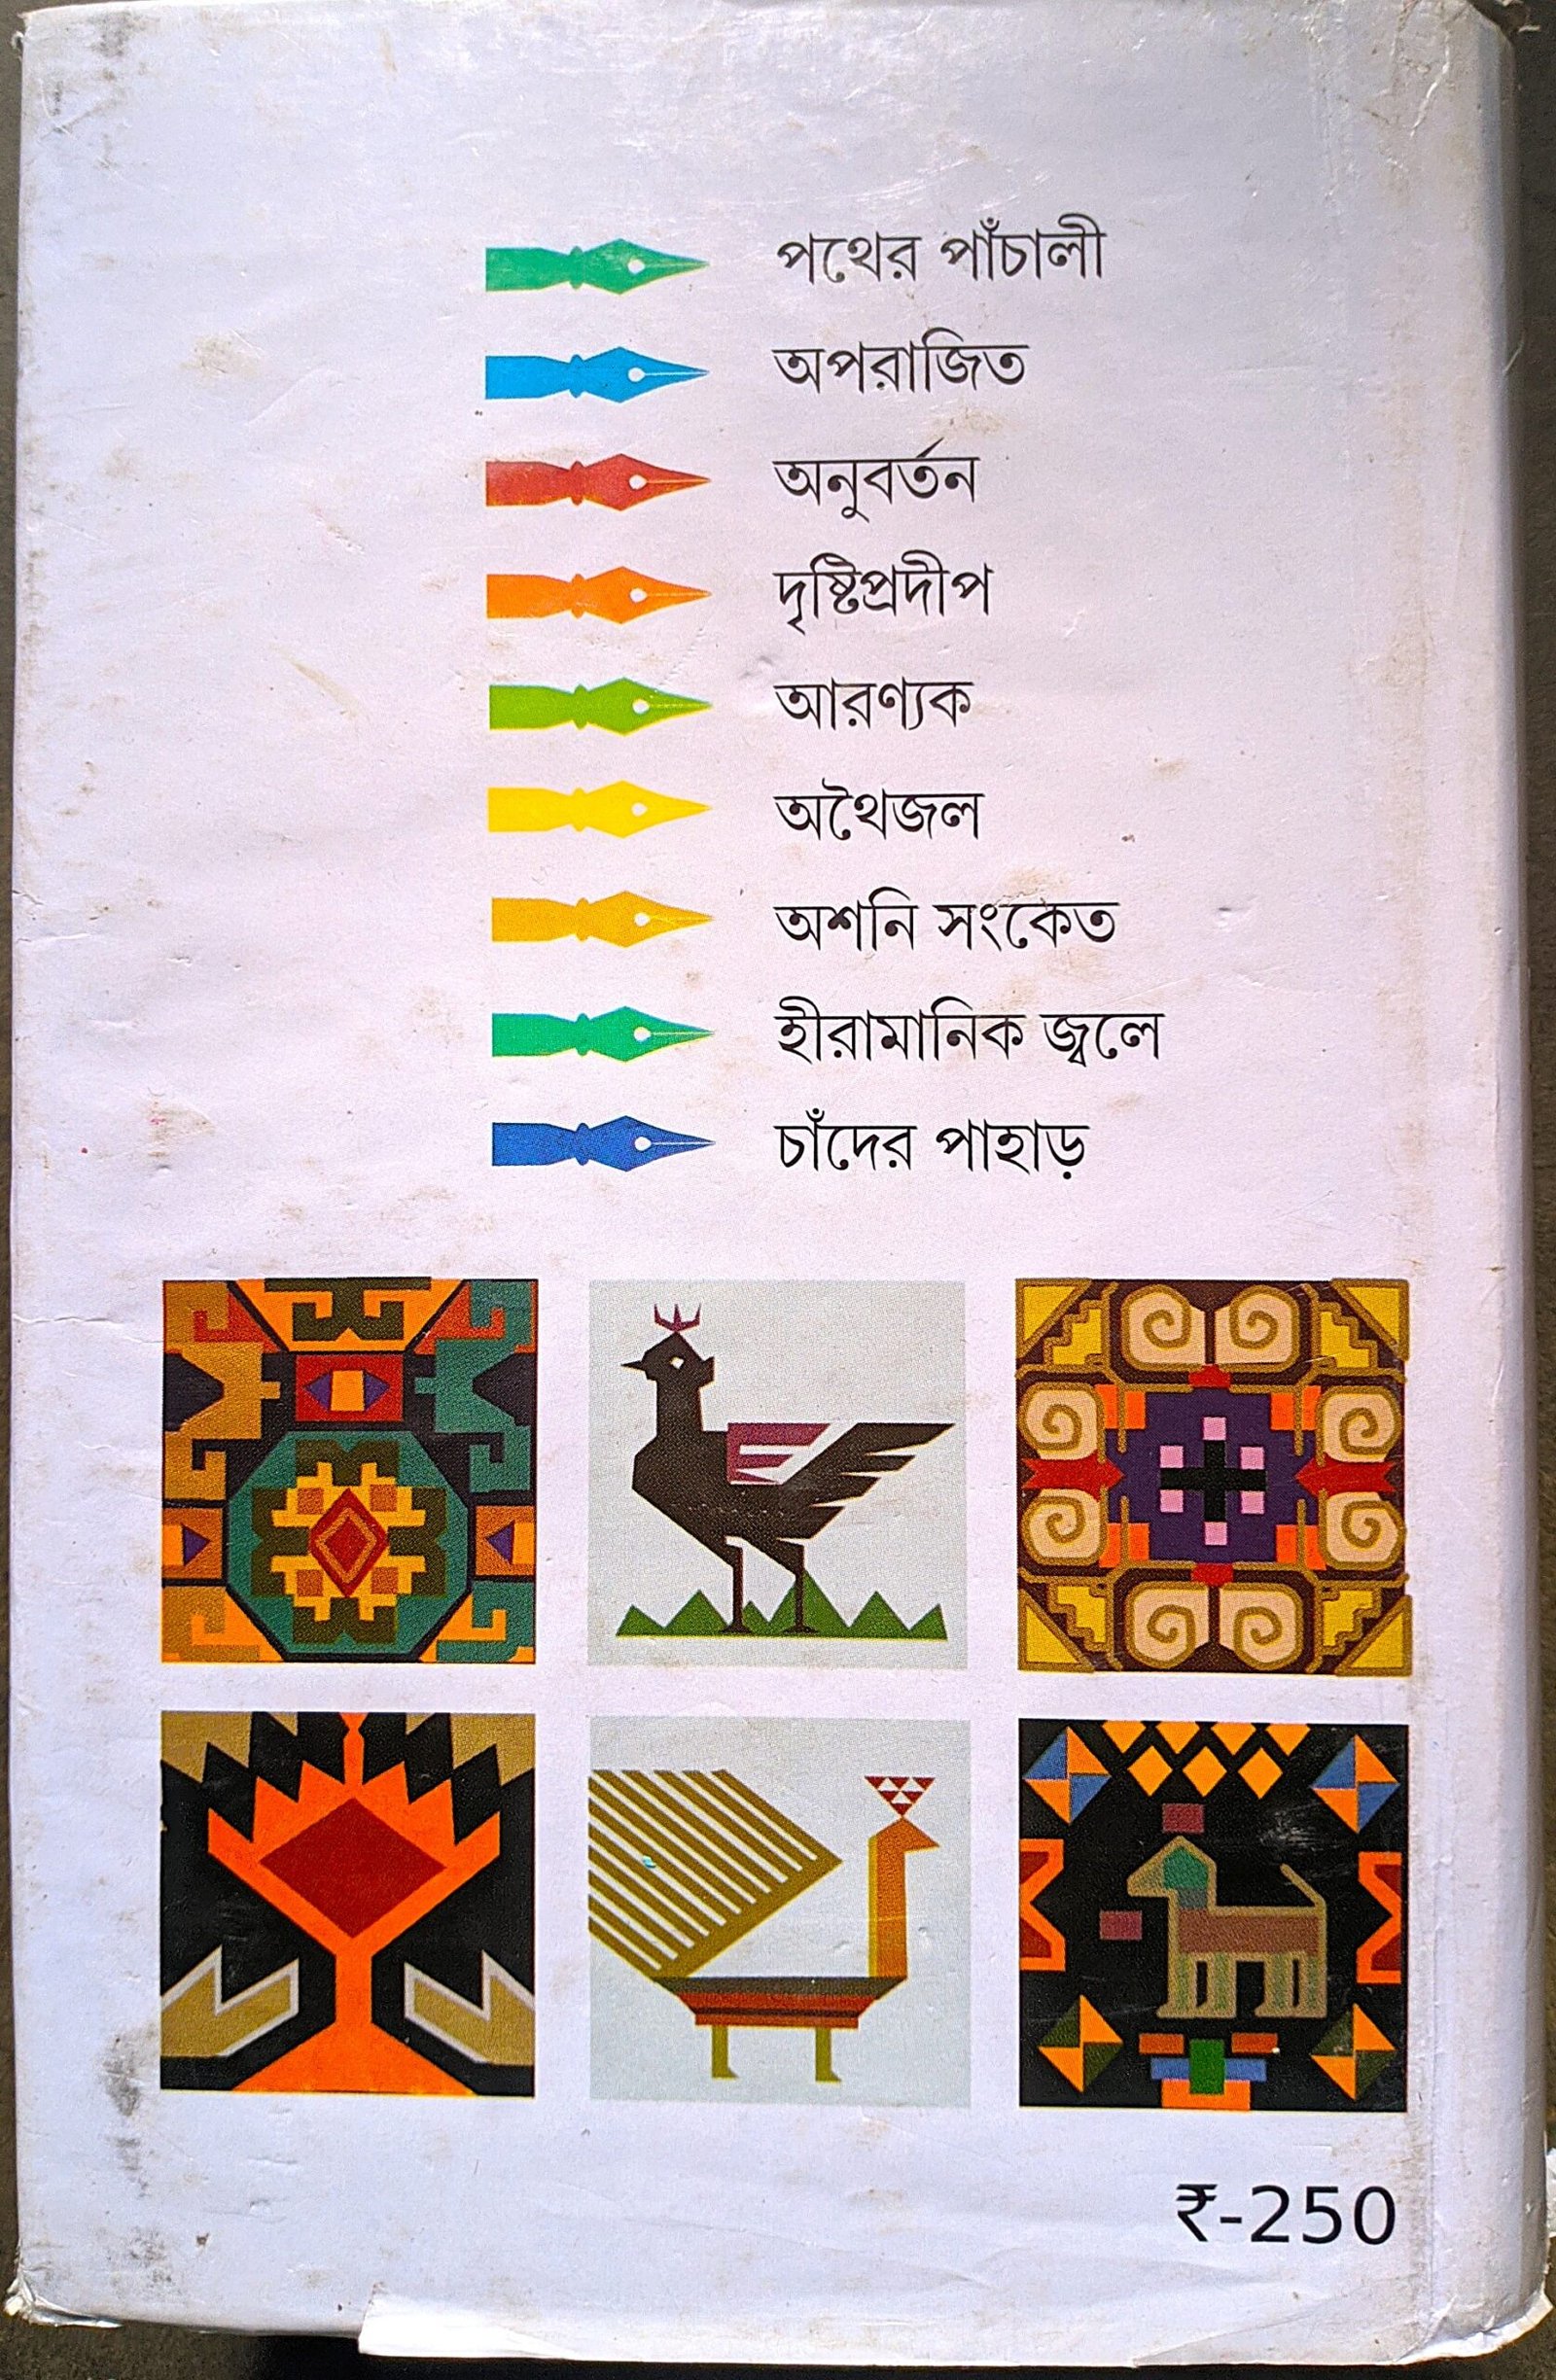 পথের পাঁচালী
অপরাজিত
অনুবর্তন
দৃষ্টিপ্রদীপ
আরণ্যক
অথৈজল
অশনি সংকেত
হীরামানিক জ্বলে
চাঁদের পাহাড়
₹-250